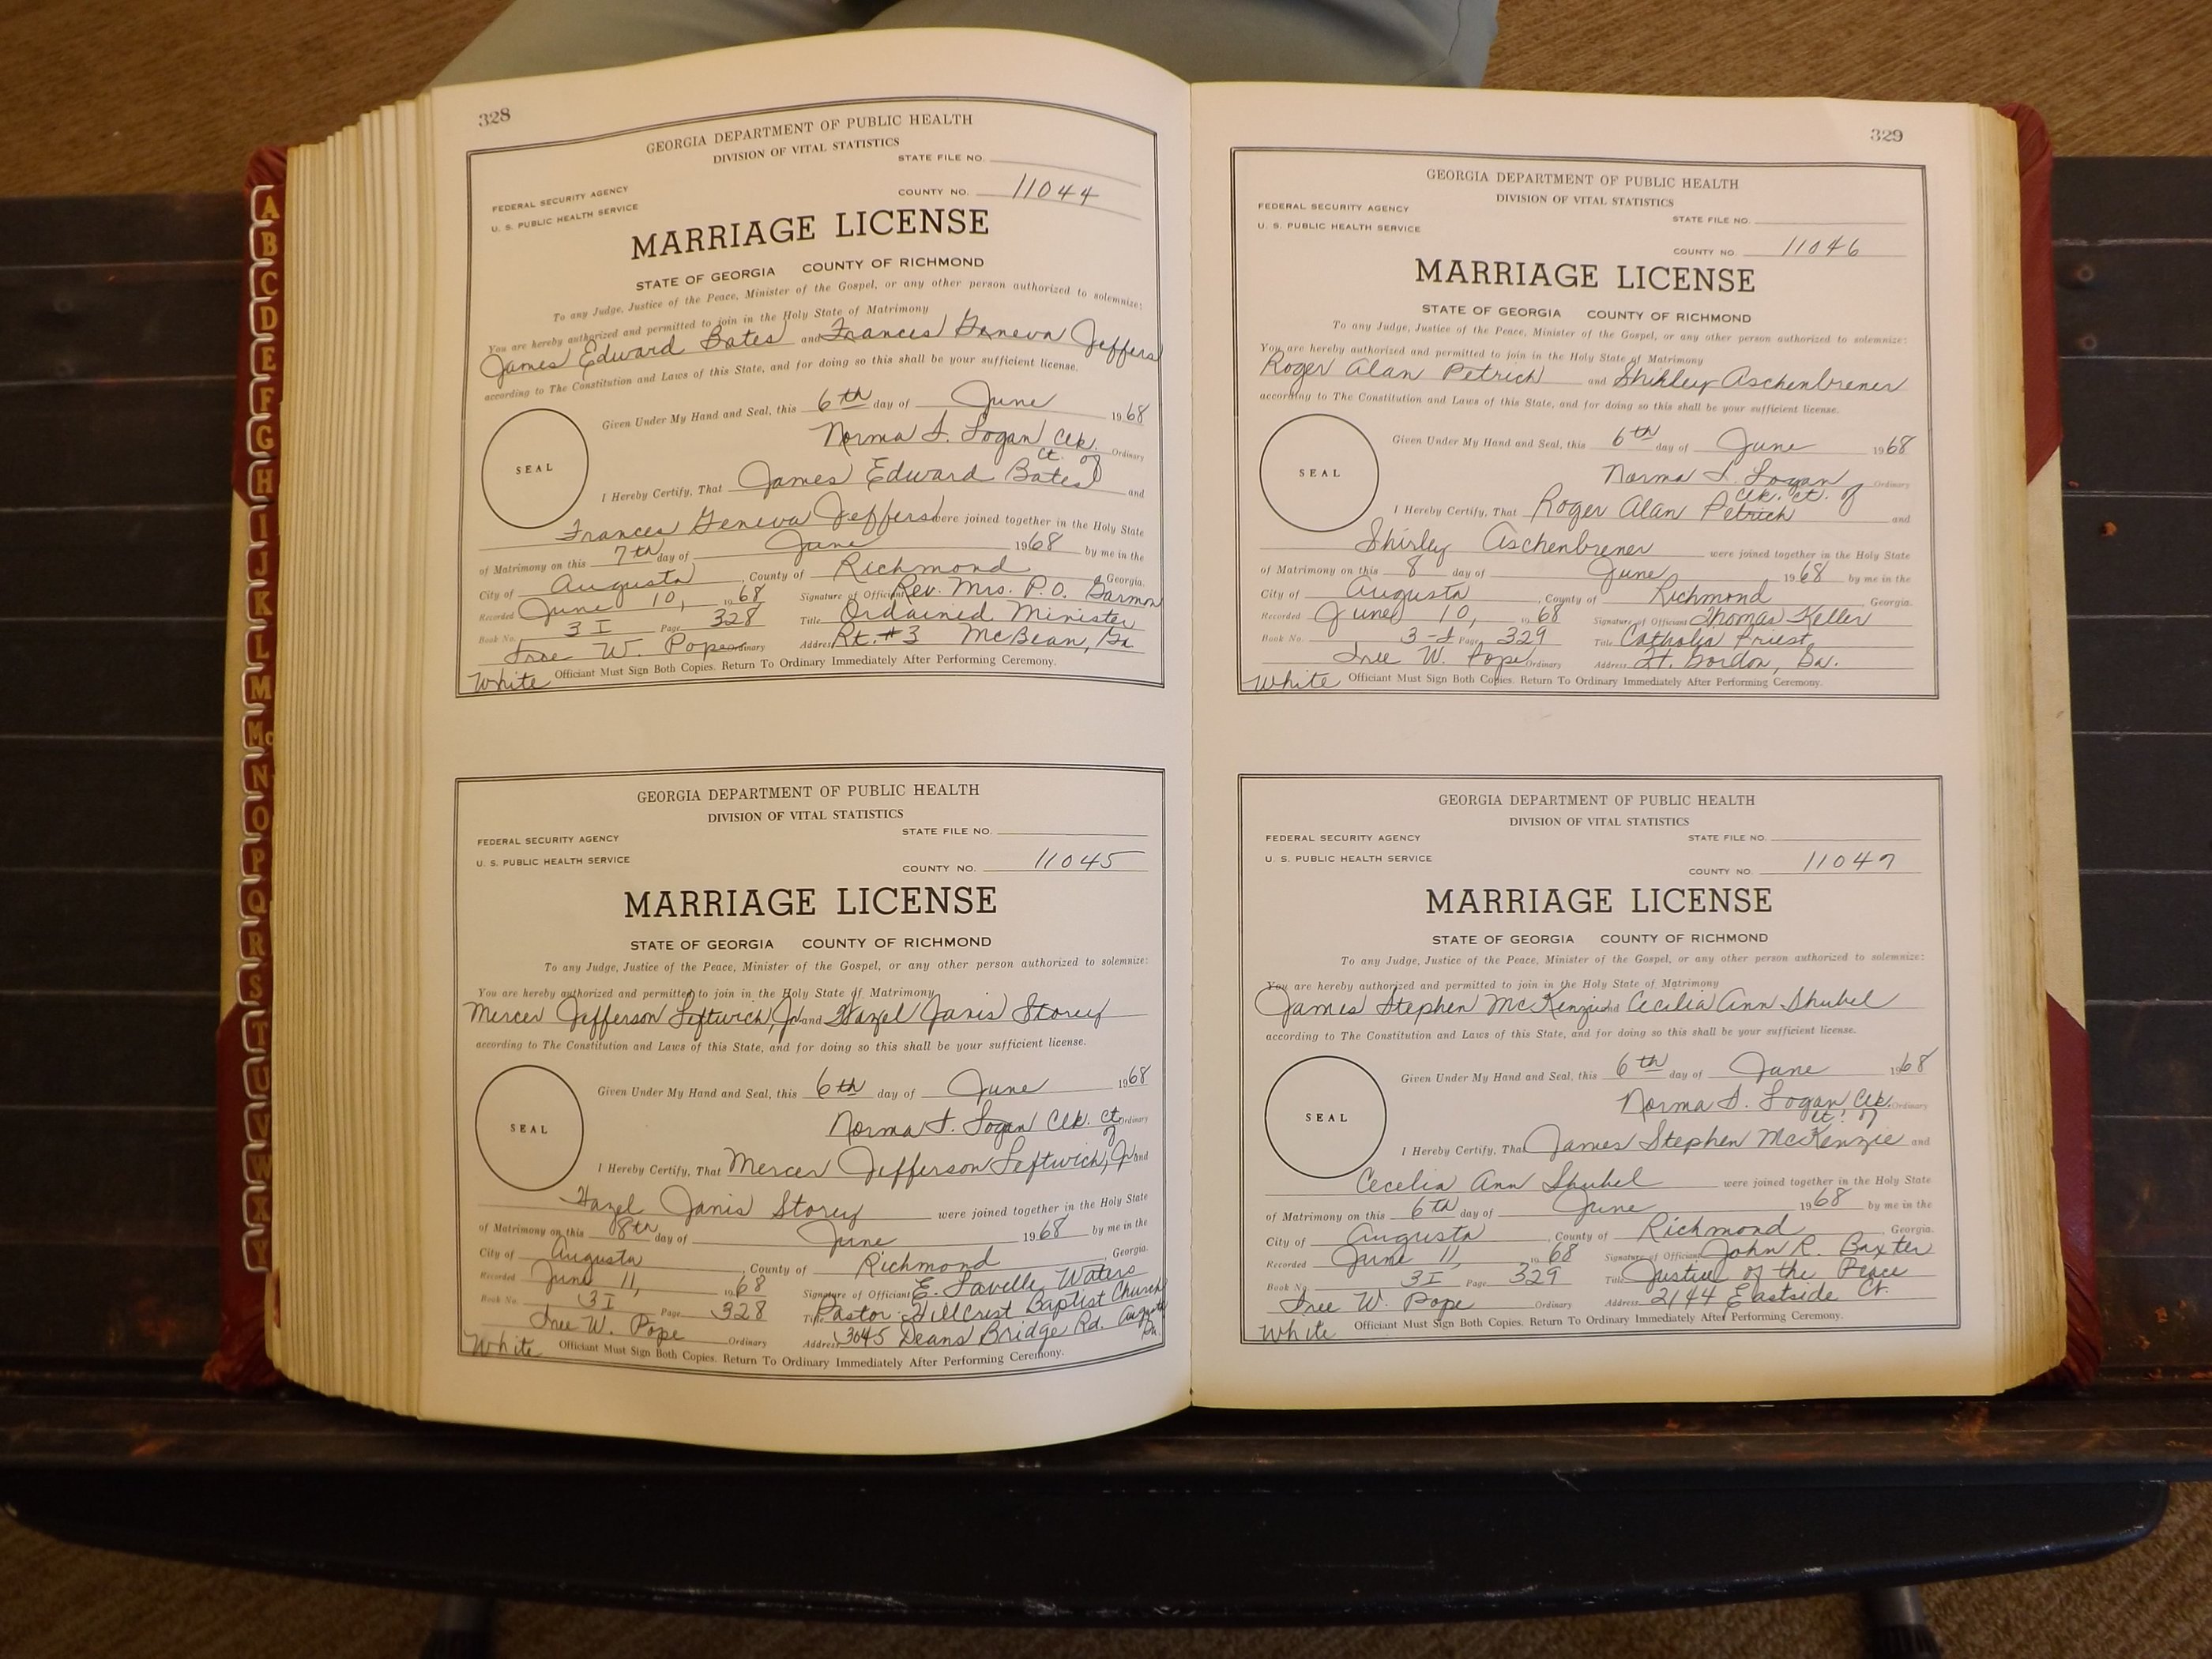 328
GEORGIA DEPARTMENT OF PUBLIC HEALTH
DIVISION OF VITAL STATISTICS
STATE FILE NO.
FEDERAL SECURITY AGENCY
COUNTY NO. 11044
U. S. PUBLIC HEALTH SERVICE
MARRIAGE LICENSE
STATE OF GEORGIA COUNTY OF RICHMOND
To any Judge, Justice of the Peace, Minister of the Gospel, or any other person authorized to solemnize:
You are hereby authorized and permitted to join in the Holy State of Matrimony
James Edward Bates and Frances Geneva Jeffers
according to The Constitution and Laws of this State, and for doing so this shall be your sufficient license.
Given Under My Hand and Seal, this 6th day of June 1968
Norma S. Logan Clk. Ordinary
ct. of
SEAL
I Hereby Certify, That James Edward Bates and
Frances Geneva Jeffers were joined together in the Holy State
of Matrimony on this 7th day of June 1968 by me in the
City of Augusta, County of Richmond, Georgia.
Recorded June 10, 1968 Signature of Officiant Rev. Mrs. P.O. Garmon
Book No. 3 I Page 328 Title Ordained Minister
W. Pope Ordinary Address Rt. #3 McBean, Ga.
White Officiant Must Sign Both Copies. Return To Ordinary Immediately After Performing Ceremony.
GEORGIA DEPARTMENT OF PUBLIC HEALTH
DIVISION OF VITAL STATISTICS
STATE FILE NO.
FEDERAL SECURITY AGENCY
U. S. PUBLIC HEALTH SERVICE
COUNTY NO. 11045
MARRIAGE LICENSE
STATE OF GEORGIA COUNTY OF RICHMOND
To any Judge, Justice of the Peace, Minister of the Gospel, or any other person authorized to solemnize:
You are hereby authorized and permitted to join in the Holy State of Matrimony
Mercer Jefferson Leftwich, Jr. and Hazel Janis Storey
according to The Constitution and Laws of this State, and for doing so this shall be your sufficient license.
Given Under My Hand and Seal, this 6th day of June 1968
Norma S. Logan Clk. Ct. Ordinary
of
SEAL
I Hereby Certify, That Mercer Jefferson Leftwich, Jr. and
Hazel Janis Storey were joined together in the Holy State
of Matrimony on this 8th day of June 1968 by me in the
City of Augusta, County of Richmond, Georgia.
Recorded June 11, 1968 Signature of Officiant E. Lavelle Waters
Book No. 3 I Page 328 Title Pastor Hillcrest Baptist Church
W. Pope Ordinary Address 3045 Deans Bridge Rd. Augusta Ga.
White Officiant Must Sign Both Copies. Return To Ordinary Immediately After Performing Ceremony.
329
GEORGIA DEPARTMENT OF PUBLIC HEALTH
DIVISION OF VITAL STATISTICS
FEDERAL SECURITY AGENCY
STATE FILE NO.
U. S. PUBLIC HEALTH SERVICE
COUNTY NO. 11046
MARRIAGE LICENSE
STATE OF GEORGIA COUNTY OF RICHMOND
To any Judge, Justice of the Peace, Minister of the Gospel, or any other person authorized to solemnize:
You are hereby authorized and permitted to join in the Holy State of Matrimony
Roger Alan Petrich and Shirley Aschenbrener
according to The Constitution and Laws of this State, and for doing so this shall be your sufficient license.
Given Under My Hand and Seal, this 6th day of June 1968
Norma S. Logan Ordinary
Clk. Ct. of
SEAL
I Hereby Certify, That Roger Alan Petrich and
Shirley Aschenbrener were joined together in the Holy State
of Matrimony on this 8 day of June 1968 by me in the
City of Augusta, County of Richmond Georgia.
Recorded June 10, 1968 Signature of Officiant Thomas Keller
Book No. 3-I Page 329 Title Catholic Priest,
W. Pope Ordinary Address Ft. Gordon, Ga.
White Officiant Must Sign Both Copies. Return To Ordinary Immediately After Performing Ceremony.
GEORGIA DEPARTMENT OF PUBLIC HEALTH
DIVISION OF VITAL STATISTICS
FEDERAL SECURITY AGENCY
STATE FILE NO.
U. S. PUBLIC HEALTH SERVICE
COUNTY NO. 11047
MARRIAGE LICENSE
STATE OF GEORGIA COUNTY OF RICHMOND
To any Judge, Justice of the Peace, Minister of the Gospel, or any other person authorized to solemnize:
You are hereby authorized and permitted to join in the Holy State of Matrimony
James Stephen McKenzie and Cecilia Ann Shubel
according to The Constitution and Laws of this State, and for doing so this shall be your sufficient license.
Given Under My Hand and Seal, this 6th day of June 1968
Norma S. Logan Clk. Ordinary
Ct. of
SEAL
I Hereby Certify, That James Stephen McKenzie and
Cecelia Ann Shubel were joined together in the Holy State
of Matrimony on this 6th day of June 1968 by me in the
City of Augusta, County of Richmond, Georgia.
Recorded June 11, 1968 Signature of Officiant John R. Baxter
Book No. 3I Page 329 Title Justice of the Peace
W. Pope Ordinary Address 2144 Eastside Ct.
White Officiant Must Sign Both Copies. Return To Ordinary Immediately After Performing Ceremony.
A
B
C
D
E
F
G
H
I
J
K
L
M
Mc
N
O
P
Q
R
S
T
U
V
W
X
Y